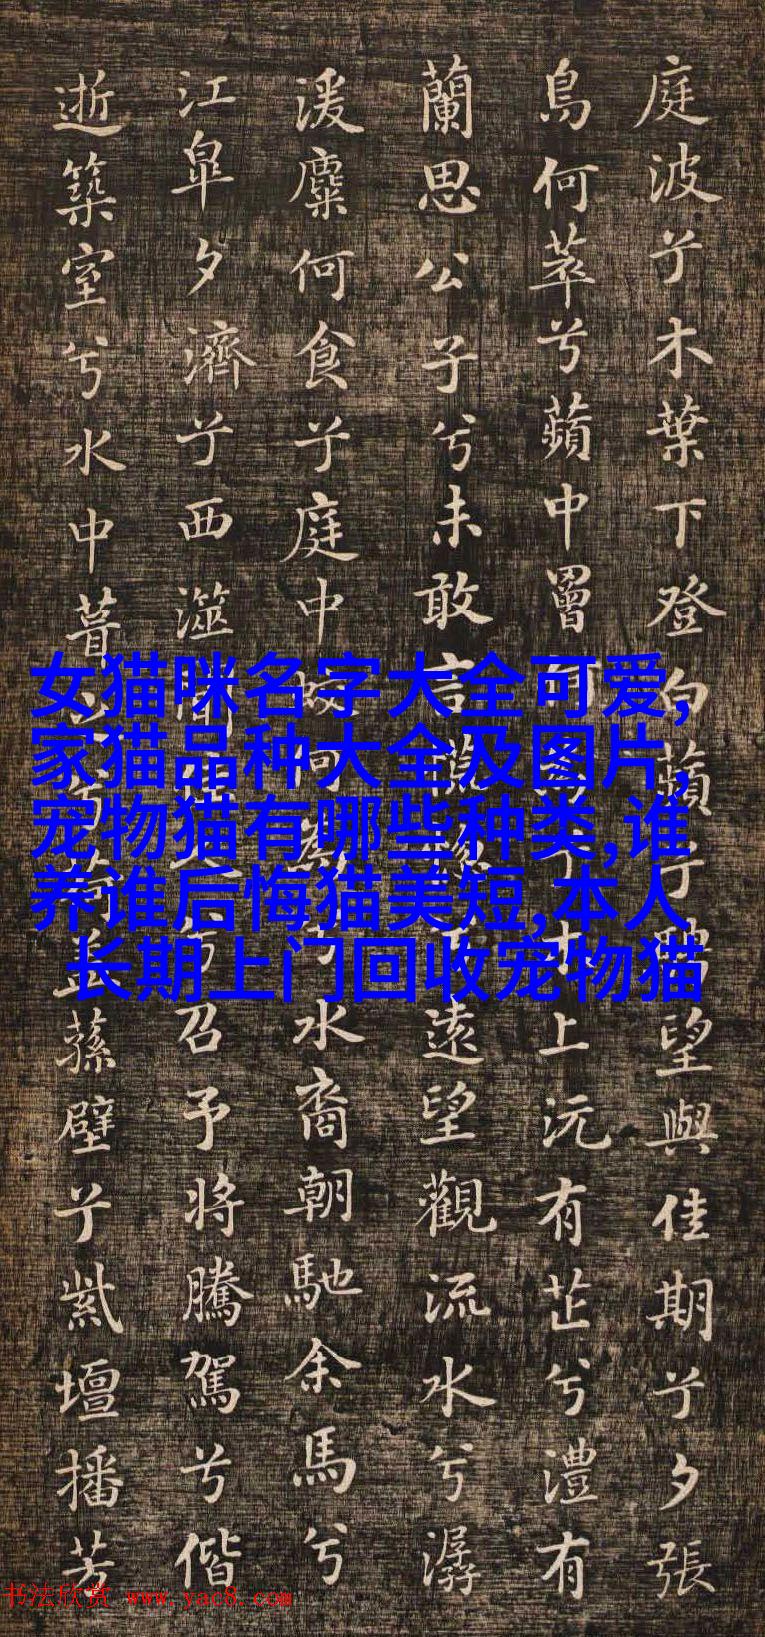 庭波兮木葉下登白蘋兮騁望與佳期兮夕張
鳥何萃兮蘋中罾上沅有芷兮澧有
蘭思公子兮未敢言遠望觀流水兮潺
湲麋何食兮庭中水裔朝馳余馬兮
江皐夕濟兮西澨聞召予將騰駕兮偕
逝築室兮水中葺蓀壁兮紫壇播芳
女猫咪名字大全可爱,
家猫品种大全及图片,
宠物猫有哪些种类,谁
养谁后悔猫美短,本人
长期上门回收宠物猫
书法欣赏 www.yac8.com